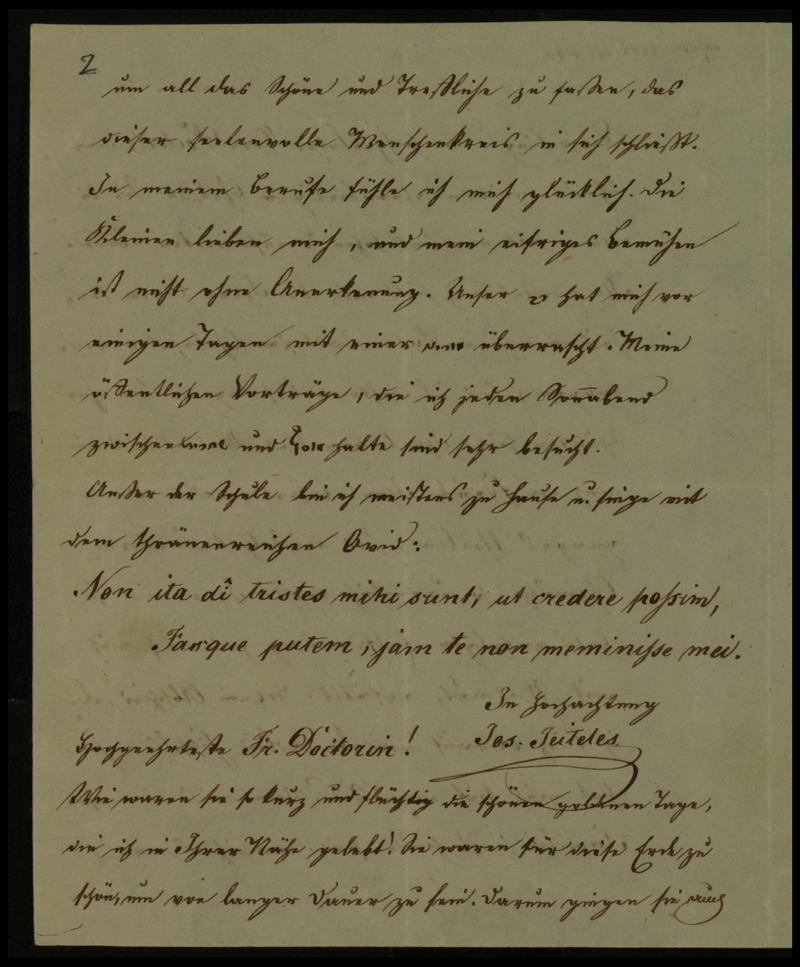 2
um all das Schöne und Treffliche zu fassen, das
dieser seelenvolle Menschenkreis in sich schließt.
In meinem Berufe fühle ich mich glücklich. Die
Kleinen lieben mich, und mein eifriges Bemühen
ist nicht ohne Anerkennung. Unser hat mich vor
einigen Tagen mit einer überrascht. Meine
öffentlichen Vorträge, die ich jeden Sonnabend
zwischen und halte sind sehr besucht.
Außer der Schule bin ich meistens zu Hause u. singe mit
dem thränenreichen Ovid:
Non ita dî tristes mihi sunt, ut credere possim,
Parque putem, jam te non meminisse mei.
In Hochachtung
Jos. Jeiteles
Hochgeehrteste Fr. Doctorin!
Wie waren sie so kurz und flüchtig die schönen goldenen Tage,
die ich in Ihrer Nähe gelebt! Sie waren für diese Erde zu
schön, um von langer Dauer zu sein. Darum gingen sie auch